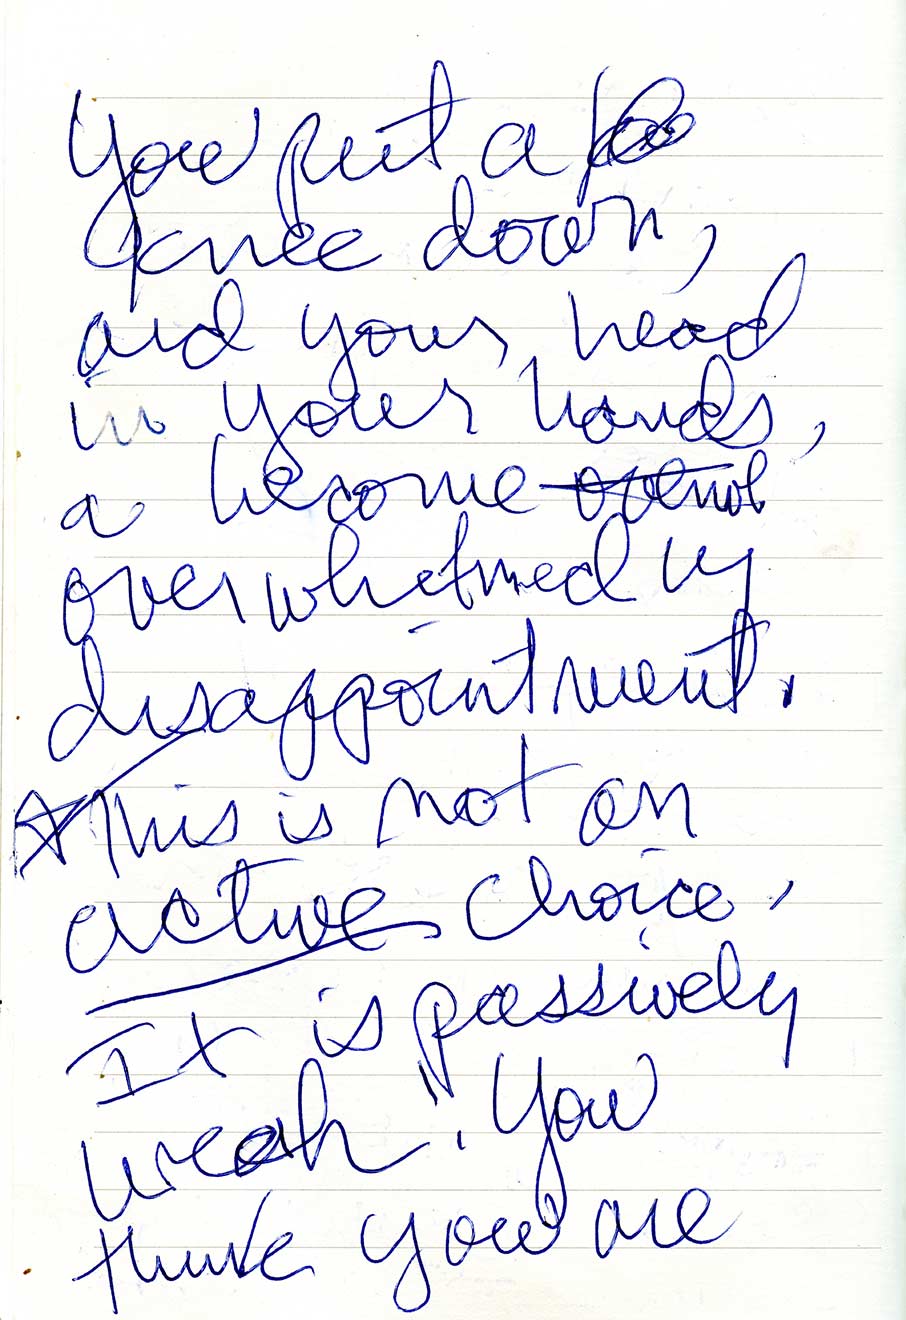 You put a
knee down,
and your head
in your hands,
a become overwh
overwhelmed by
disappointment.
This is not an
active choice.
It is passively
weak". You
think you are